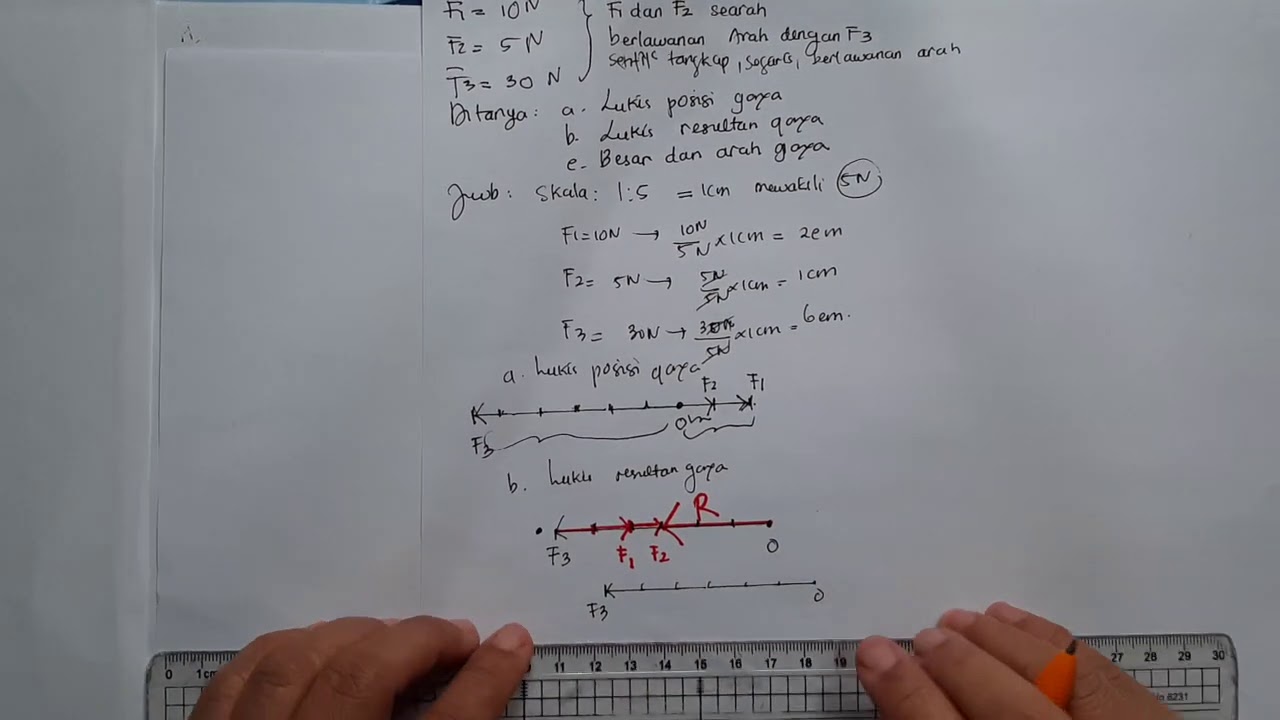 F1 = 10 N } F1 dan F2 searah
F2 = 5 N berlawanan Arah dengan F3
F3 = 30 N tangkap, segaris, berlawanan arah
Ditanya: a. Lukis posisi gaya
b. Lukis resultan gaya
c. Besar dan arah gaya
Jwb: Skala: 1:5 = 1cm mewakili 5N
F1=10N → 10N/5N × 1cm = 2cm
F2 = 5N → 5N/5N × 1cm = 1cm
F3 = 30N → 30N/5N × 1cm = 6cm.
a. Lukis posisi gaya
F2 F1
F3 0
b. Lukis resultan gaya
R
F3 F1 F2 0
F3 0
0 1cm 11 12 13 14 15 16 17 18 19 27 28 29 30
6231